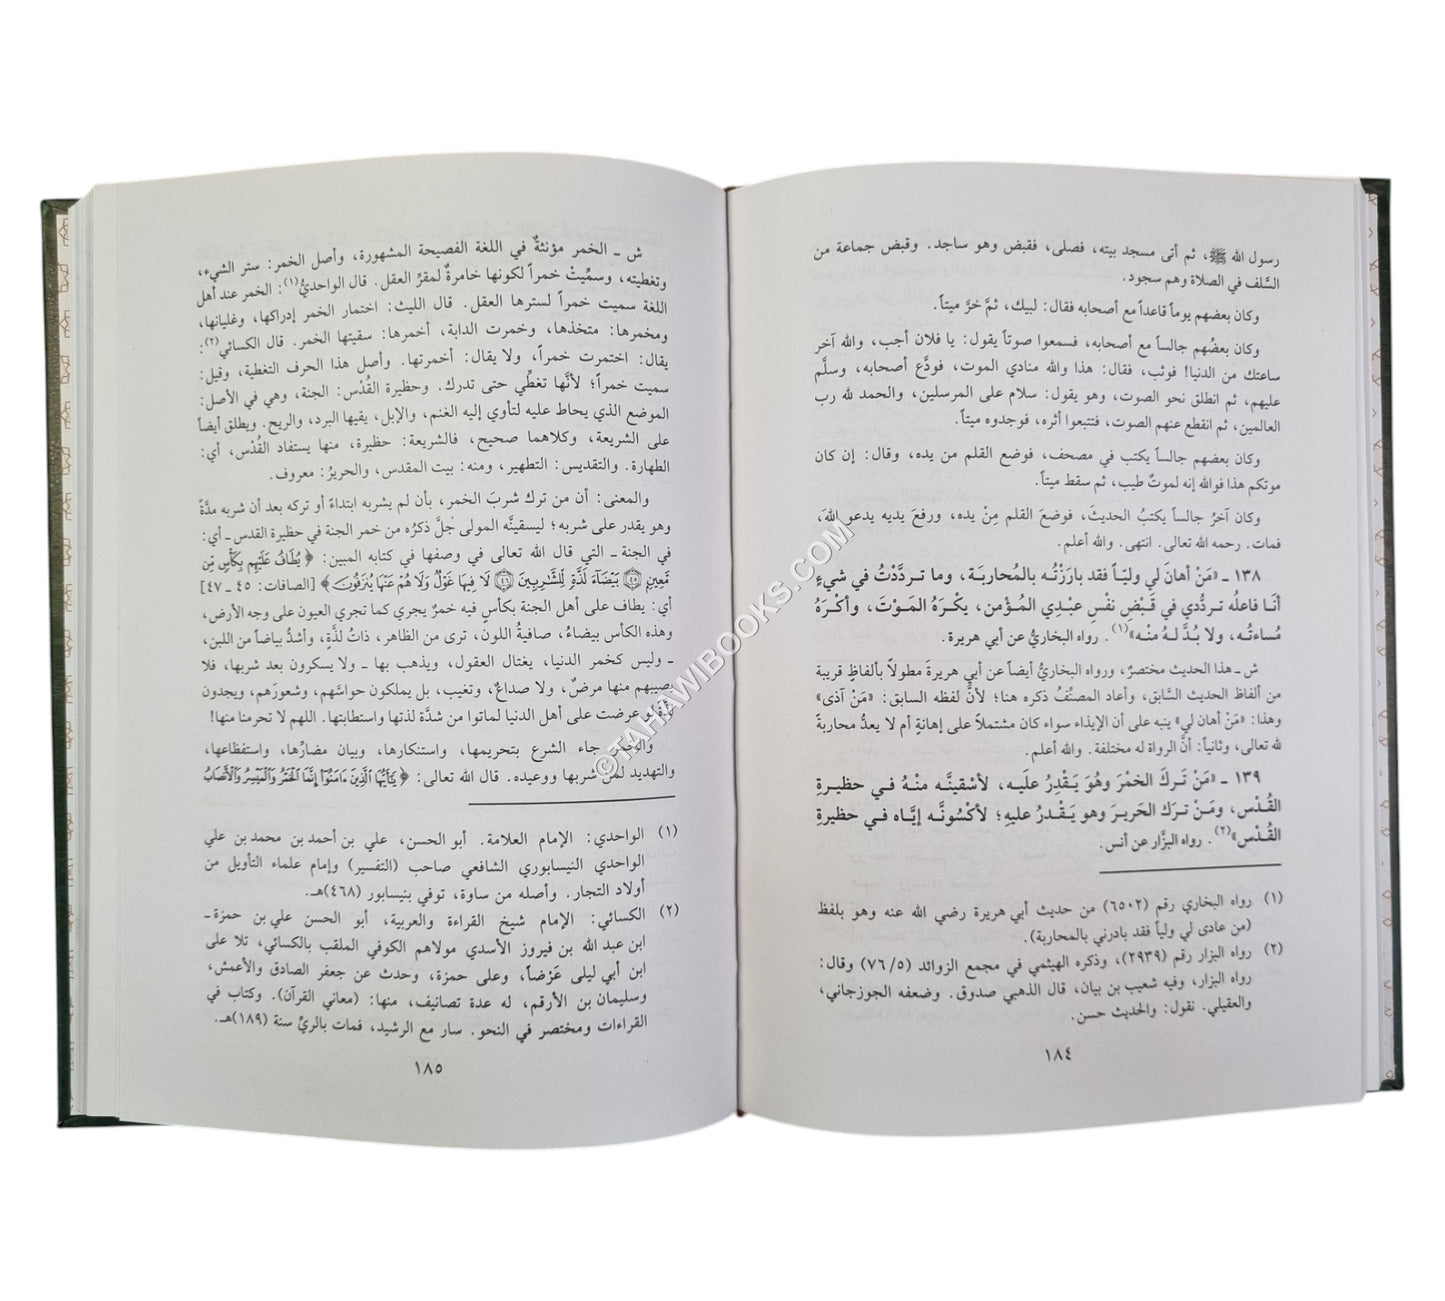 رسول الله ﷺ، ثم أتى مسجد بيته، فصلى، فقبض وهو ساجد. وقبض جماعة من
السَّلف في الصلاة وهم سجود.
وكان بعضهم يوماً قاعداً مع أصحابه فقال: لبيك، ثمَّ خرَّ ميتاً.
وكان بعضُهم جالساً مع أصحابه، فسمعوا صوتاً يقول: يا فلان أجب، والله آخر
ساعتك من الدنيا! فوثب، فقال: هذا والله منادي الموت، فودَّع أصحابه، وسلَّم
عليهم، ثم انطلق نحو الصوت، وهو يقول: سلام على المرسلين، والحمد لله رب
العالمين، ثم انقطع عنهم الصوت، فتتبعوا أثره، فوجدوه ميتاً.
وكان بعضهم جالساً يكتب في مصحف، فوضع القلم من يده، وقال: إن كان
موتكم هذا فوالله إنه لموتٌ طيب، ثم سقط ميتاً.
وكان آخرُ جالساً يكتبُ الحديثَ، فوضعَ القلم مِنْ يده، ورفعَ يديه يدعو اللهَ،
فمات. رحمه الله تعالى. انتهى. والله أعلم.
١٣٨ ـ «مَنْ أهانَ لي وليّاً فقد بارَزْتُه بالمُحاربَة، وما تردَّدْتُ في شيءٍ
أنَا فاعلُه تردُّدي في قَبْضِ نفْسِ عبْدِي المُؤْمن، يكْرَهُ المَوْتَ، وأكْرَهُ
مُساءتُه، ولا بُدَّ لهُ منْه»(١). رواه البخاريُّ عن أبي هريرة.
ش ـ هذا الحديث مختصرٌ، ورواه البخاريُّ أيضاً عن أبي هريرةَ مطولاً بألفاظٍ قريبة
من ألفاظ الحديث السَّابق، وأعاد المصنِّفُ ذكره هنا؛ لأنَّ لفظه السابق: «مَنْ آذى»
وهذا: «مَنْ أهان لي» ينبه على أن الإيذاء سواء كان مشتملاً على إهانةٍ أم لا يعدُّ محاربةً
لله تعالى، وثانياً: أنَّ الرواة له مختلفة. والله أعلم.
١٣٩ ـ «مَنْ تَركَ الخمْرَ وهُوَ يَقْدِرُ علَيه، لأسْقينَّه منْهُ في حظيرةِ
القُدْس، ومَنْ تركَ الحَريرَ وهو يَقْدرُ عليهِ؛ لأكْسُونَّه إيَّاه في حظيرةِ
القُدْس»(٢). رواه البزَّار عن أنس.
(١) رواه البخاري رقم (٦٥٠٢) من حديث أبي هريرة رضي الله عنه وهو بلفظ
(من عادى لي ولياً فقد بادرني بالمحاربة).
(٢) رواه البزار رقم (٢٩٣٩)، وذكره الهيثمي في مجمع الزوائد (٥/٧٦) وقال:
رواه البزار، وفيه شعيب بن بيان، قال الذهبي صدوق. وضعفه الجوزجاني،
والعقيلي. نقول: والحديث حسن.
١٨٤
ش ـ الخمر مؤنثةٌ في اللغة الفصيحة المشهورة، وأصل الخمر: ستر الشيء،
وتغطيته، وسمِّيتْ خمراً لكونها خامرةٌ لمقرِّ العقل. قال الواحديُّ(١): الخمر عند أهل
اللغة سميت خمراً لسترها العقل. قال الليث: اختمار الخمر إدراكها، وغليانها،
ومخمرها: متخذها، وخمرت الدابة، أخمرها: سقيتها الخمر. قال الكسائي(٢):
يقال: اختمرت خمراً، ولا يقال: أخمرتها. وأصل هذا الحرف التغطية، وقيل:
سميت خمراً؛ لأنَّها تغطِّي حتى تدرك. وحظيرة القُدْس: الجنة، وهي في الأصل:
الموضع الذي يحاط عليه لتأوي إليه الغنم، والإبل، يقيها البرد، والريح. ويطلق أيضاً
على الشريعة، وكلاهما صحيح، فالشريعة: حظيرة، منها يستفاد القُدْس، أي:
الطهارة. والتقديس: التطهير، ومنه: بيت المقدس، والحريرُ: معروف.
والمعنى: أن من ترك شربَ الخمر، بأن لم يشربه ابتداءً أو تركه بعد أن شربه مدَّةً
وهو يقدر على شربه؛ ليسقينَّه المولى جَلَّ ذكرُه من خمر الجنة في حظيرة القدس ـ أي:
في الجنة ـ التي قال الله تعالى في وصفها في كتابه المبين: ﴿يُطَافُ عَلَيْهِم بِكَأْسٍ مِّن
مَّعِينٍ ۝٤٥ بَيْضَاءَ لَذَّةٍ لِّلشَّارِبِينَ ۝٤٦ لَا فِيهَا غَوْلٌ وَلَا هُمْ عَنْهَا يُنزَفُونَ﴾ [الصافات: ٤٥ ـ ٤٧]
أي: يطاف على أهل الجنة بكأسٍ فيه خمرٌ يجري كما تجري العيون على وجه الأرض،
وهذه الكأس بيضاءُ، صافيةُ اللون، ترى من الظاهر، ذاتُ لذَّةٍ، وأشدُّ بياضاً من اللبن،
ـ وليس كخمر الدنيا، يغتال العقول، ويذهب بها ـ ولا يسكرون بعد شربها، فلا
يصيبهم منها مرضٌ، ولا صداعٌ، وتغيب، بل يملكون حواسَّهم، وشعورَهم، ويجدون
عرضت على أهل الدنيا لماتوا من شدَّة لذتها واستطابتها. اللهم لا تحرمنا منها!
والخمر جاء الشرع بتحريمها، واستنكارها، وبيان مضارِّها، واستفظاعها،
والتهديد لمن شربها ووعيده. قال الله تعالى: ﴿يَٰٓأَيُّهَا الَّذِينَ ءَامَنُوٓا إِنَّمَا الْخَمْرُ وَالْمَيْسِرُ وَالْأَنصَابُ
(١) الواحدي: الإمام العلامة. أبو الحسن، علي بن أحمد بن محمد بن علي
الواحدي النيسابوري الشافعي صاحب (التفسير) وإمام علماء التأويل من
أولاد التجار. وأصله من ساوة، توفي بنيسابور (٤٦٨)هـ.
(٢) الكسائي: الإمام شيخ القراءة والعربية، أبو الحسن علي بن حمزة ـ
ابن عبد الله بن فيروز الأسدي مولاهم الكوفي الملقب بالكسائي، تلا على
ابن أبي ليلى عَرْضاً، وعلى حمزة، وحدث عن جعفر الصادق والأعمش،
وسليمان بن الأرقم، له عدة تصانيف، منها: (معاني القرآن). وكتاب في
القراءات ومختصر في النحو. سار مع الرشيد، فمات بالريِّ سنة (١٨٩)هـ.
١٨٥
©TAHAWIBOOKS.COM